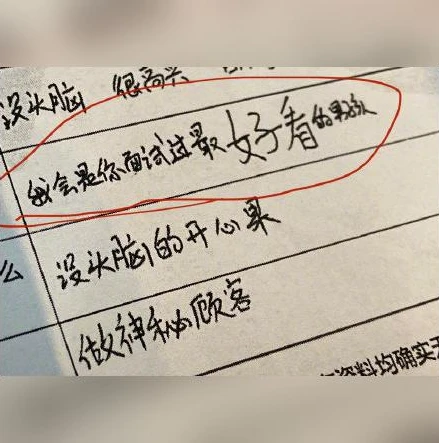 没头脑 很高兴
我会是你面试过最好看的男孩
么 没头脑的开心果
做神秘顾客
资料均确实无